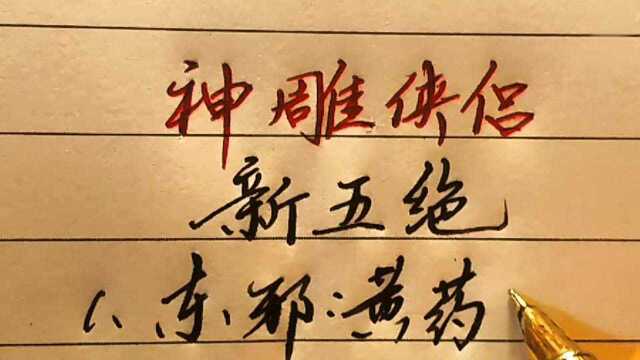 神雕侠侣
新五绝
1、东邪:黄药